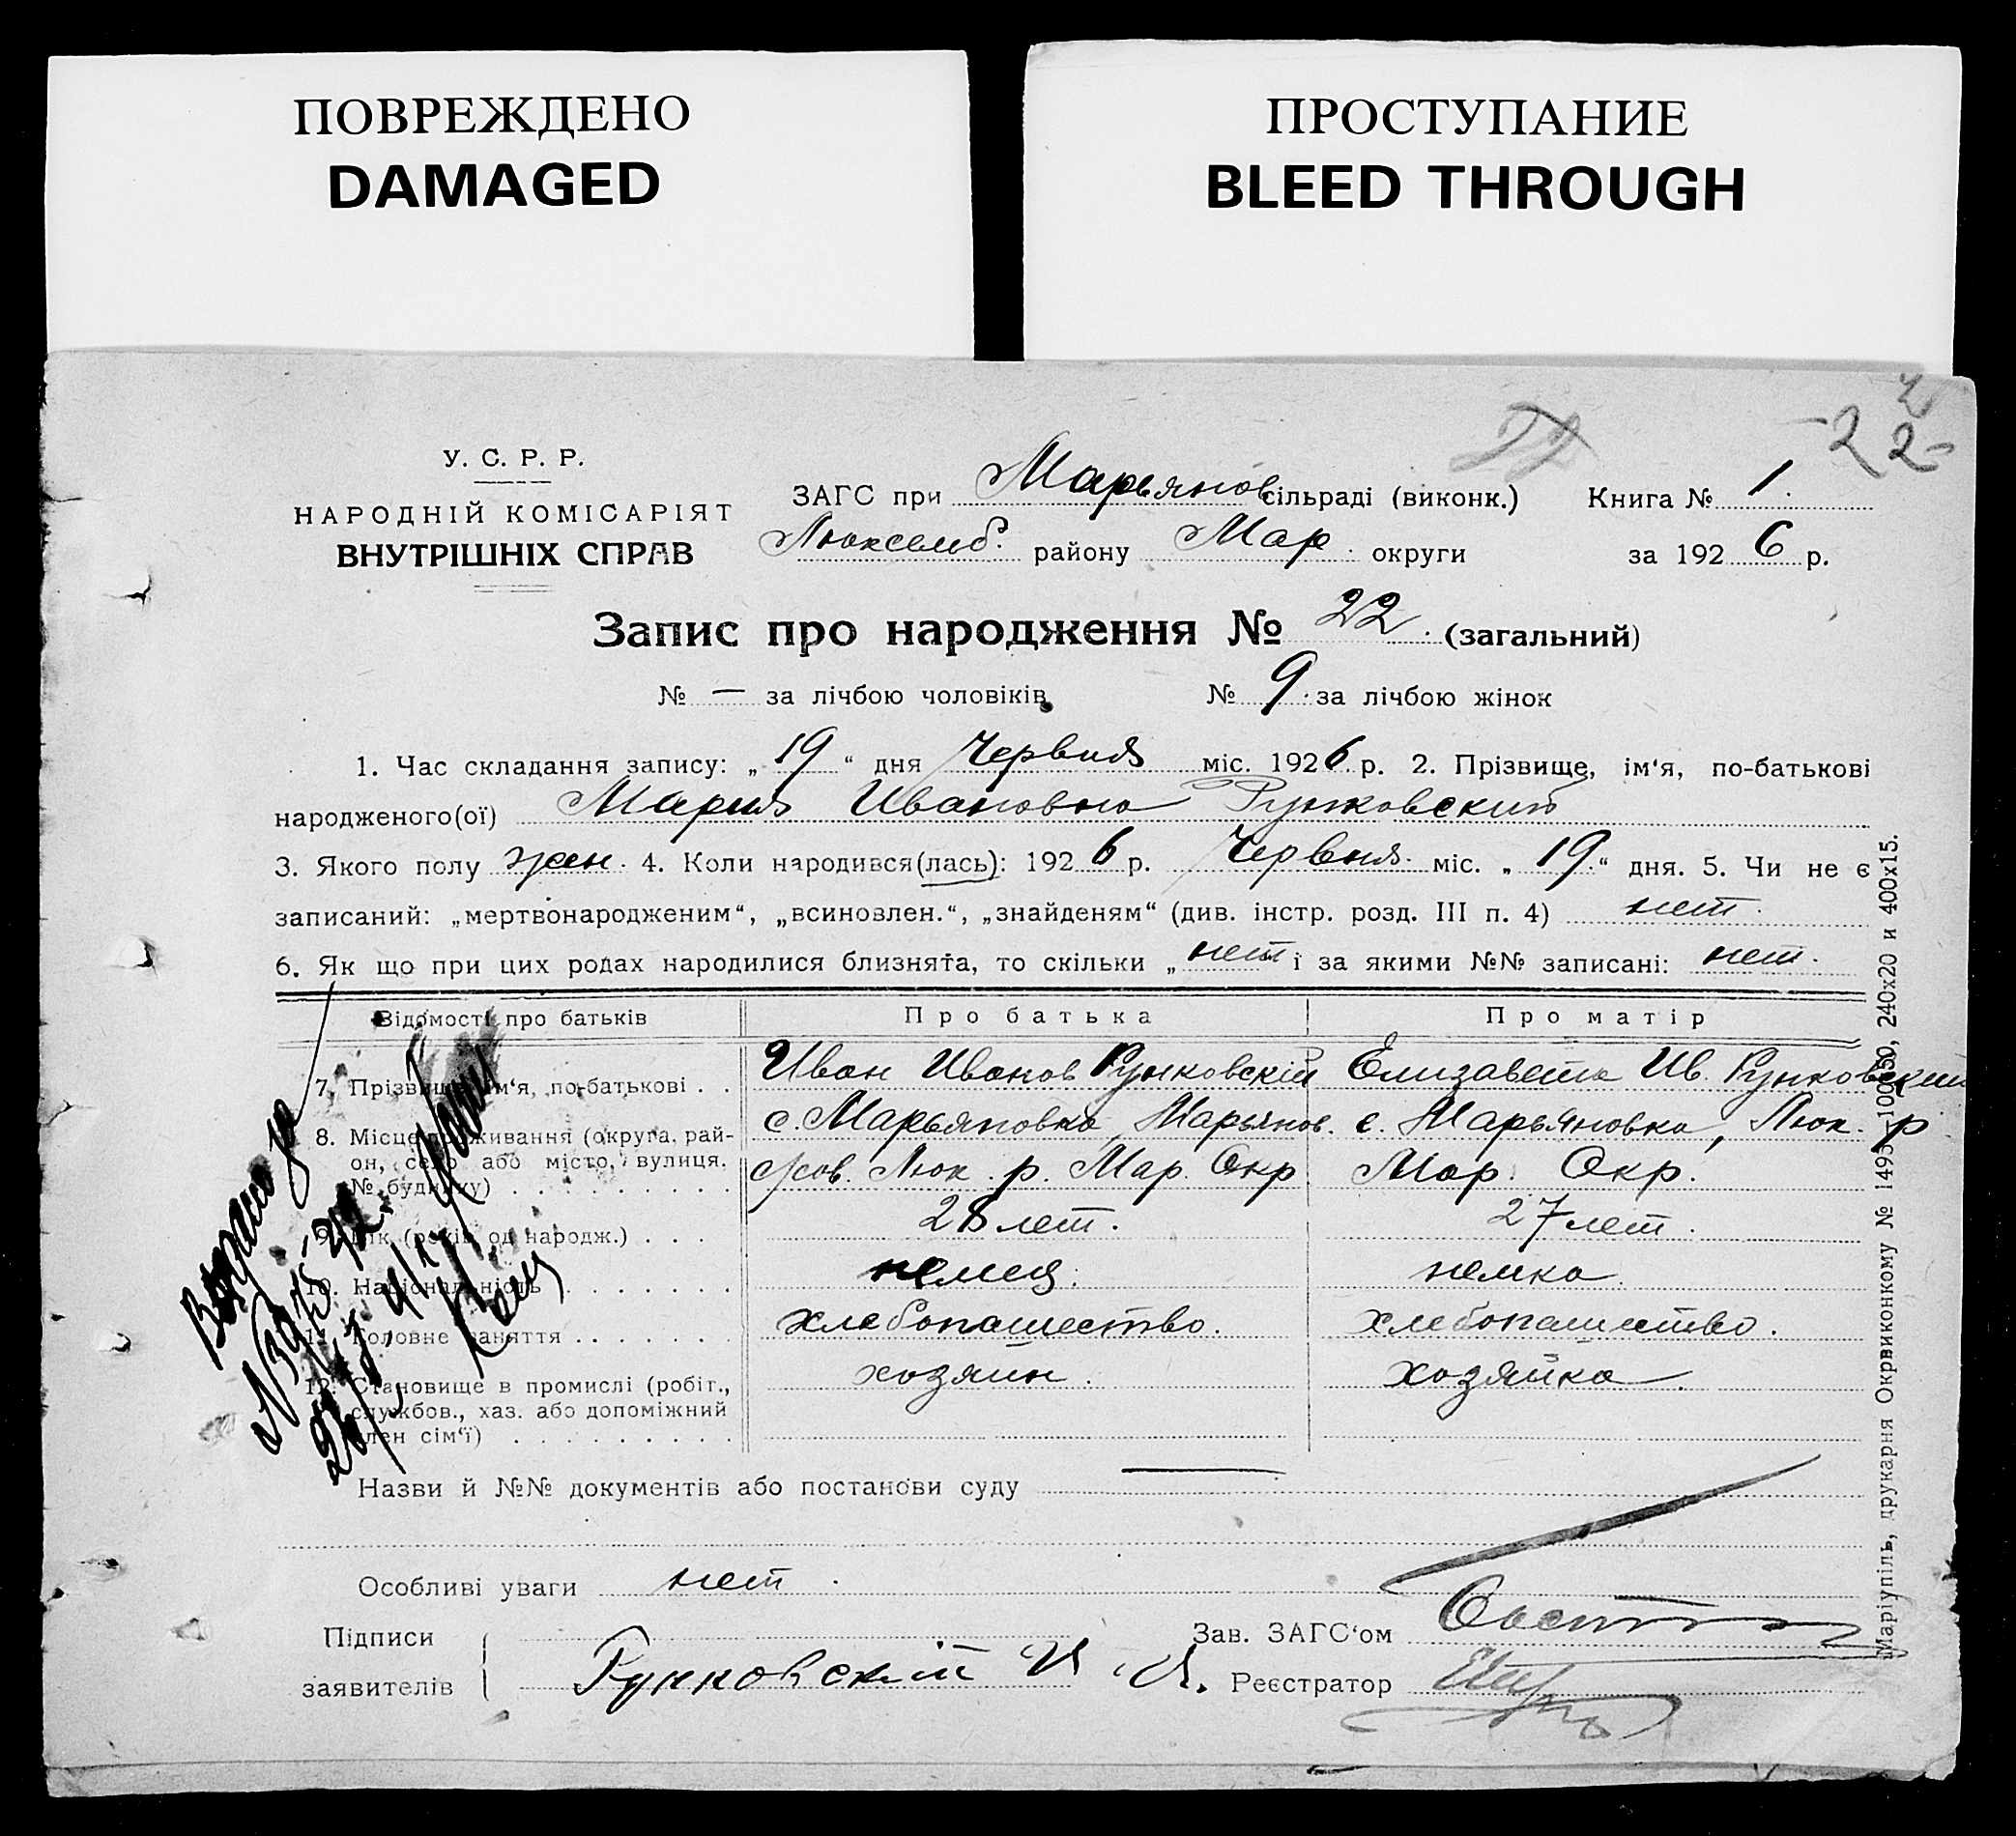 ПОВРЕЖДЕНО
DAMAGED
ПРОСТУПАНИЕ
BLEED THROUGH
22
-22-
У. С. Р. Р.
НАРОДНІЙ КОМІСАРІЯТ
ВНУТРІШНІХ СПРАВ
ЗАГС при Марьянов сільраді (виконк.) Книга № 1.
Люксемб. району Мар. округи за 1926 р.
Запис про народження № 22. (загальний)
№ — за лічбою чоловіків № 9. за лічбою жінок
1. Час складання запису: „19“ дня Червня міс. 1926 р. 2. Прізвище, ім‘я, по-батькові
народженого(ої) Мария Ивановна Рунковский
3. Якого полу жен. 4. Коли народився(лась): 1926 р. Червня. міс. „19.“ дня. 5. Чи не є
записаний: „мертвонародженим“, „всиновлен.“, „знайденям“ (див. інстр. розд. III п. 4) нет.
6. Як що при цих родах народилися близнята, то скільки „нет і за якими №№ записані: нет.
Відомості про батьків Про батька Про матір
7. Прізвище, ім‘я, по-батькові . . Иван Иванов Рунковскій Елизавета Ив. Рунковский
8. Місце проживання (округа, рай- с. Марьяновка, Марьянов. с. Марьяновка, Люк. р
он, село або місто, вулиця, Люк. р. Мар. Окр. Мар. Окр.
№ будинку) . . . . . . . . .
9. Вік (років од народж.) . . . 28 лет. 27 лет.
10. Національність . . . . . . . немец. немка.
11. Головне заняття . . . . . . хлебопашество. хлебопашество.
12. Становище в промислі (робіт., хозяин. хозяйка.
службов., хаз. або допоміжний
член сім‘ї) . . . . . . . .
Назви й №№ документів або постанови суду —
Особливі уваги нет.
Підписи Зав. ЗАГС‘ом
заявителів Рунковский И. И. Реєстратор
Маріупіль, друкарня Окрвиконкому № 1495—100х50, 240х20 и 400х15.